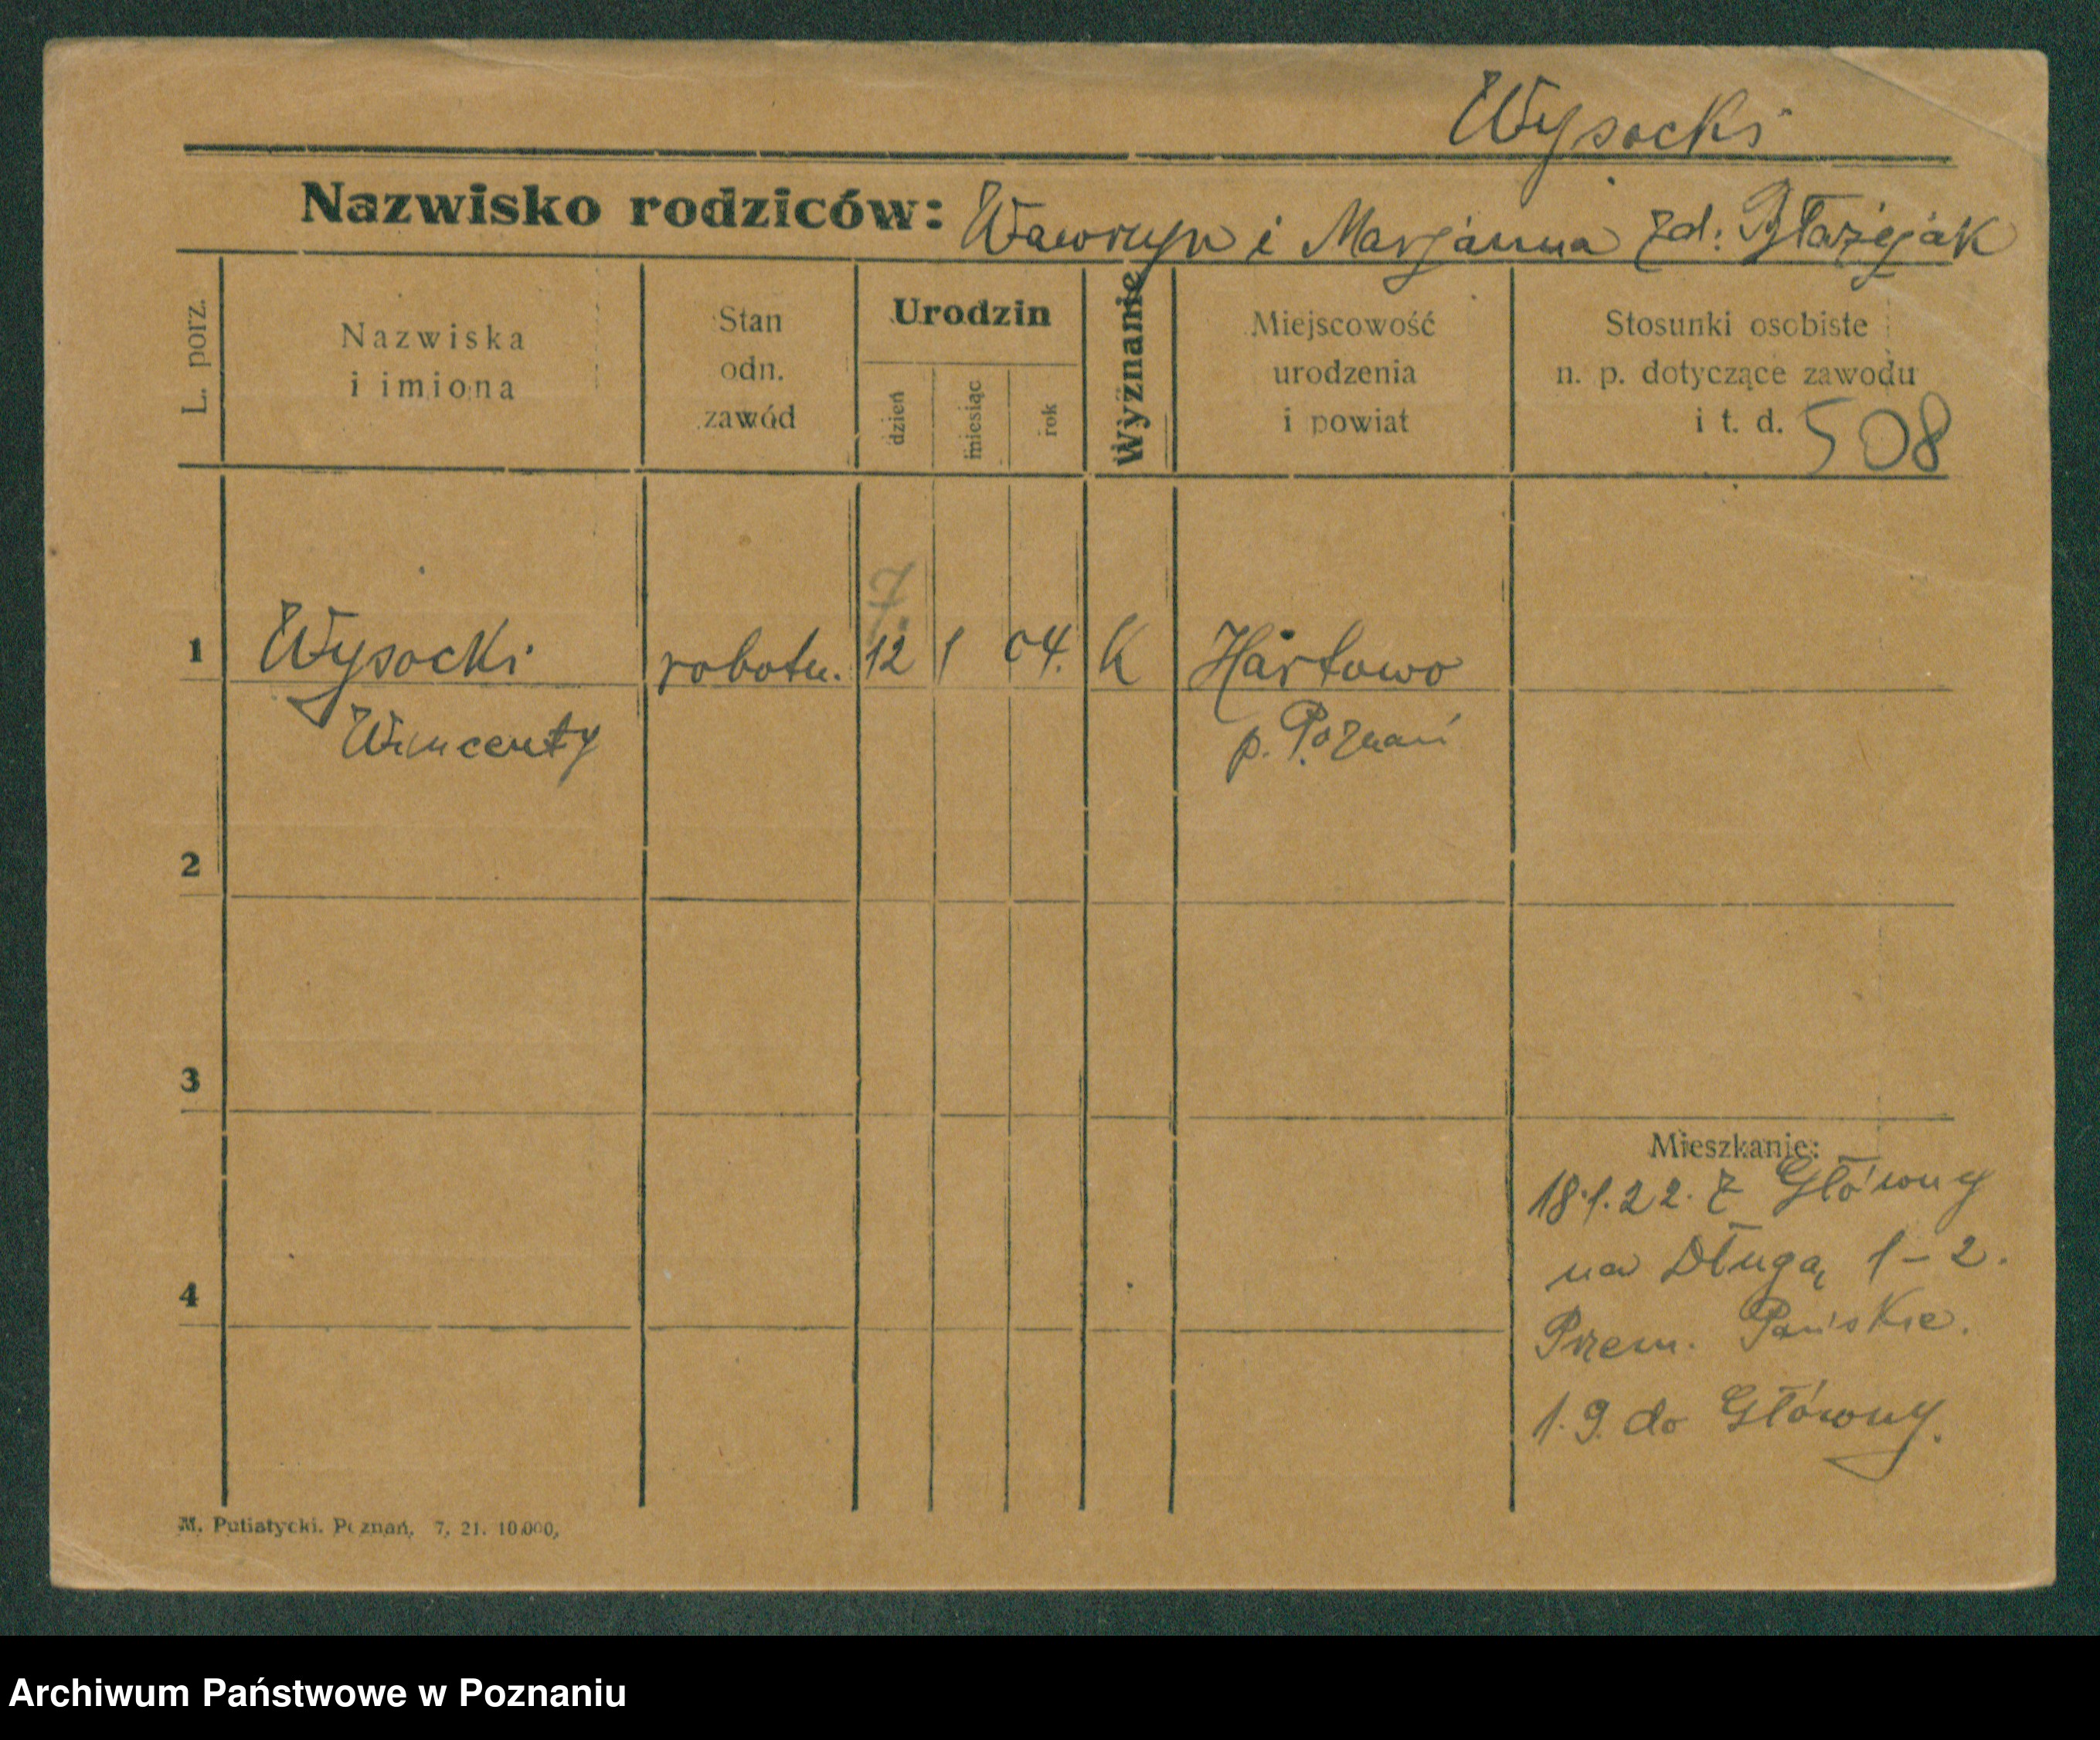 Wysocki
Nazwisko rodziców: Wawrzyn i Marjanna zd: Błażejak
L. porz.
Nazwiska
i imiona
Stan
odn.
zawód
Urodzin
dzień
miesiąc
rok
Wyznanie
Miejscowość
urodzenia
i powiat
Stosunki osobiste
n. p. dotyczące zawodu
i t. d. 508
7.
1 Wysocki robotn. 12 1 04. K Hartowo
Wincenty p. Poznań
2
3
Mieszkanie:
18.1.22. z Główny
na Długą 1-2.
Przem. Pańskie.
4
1.9. do Główny.
M. Putiatycki. Poznań, 7, 21. 10.000,
Archiwum Państwowe w Poznaniu